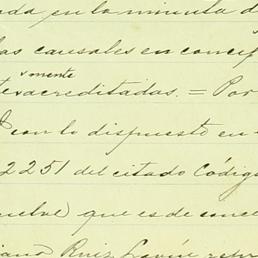 ada en la minuta d
las causales en concep
vmente
te acreditadas. = Por
con lo dispuesto en
2251 del citado Código
suelve) que es de conce
iano Ruiz